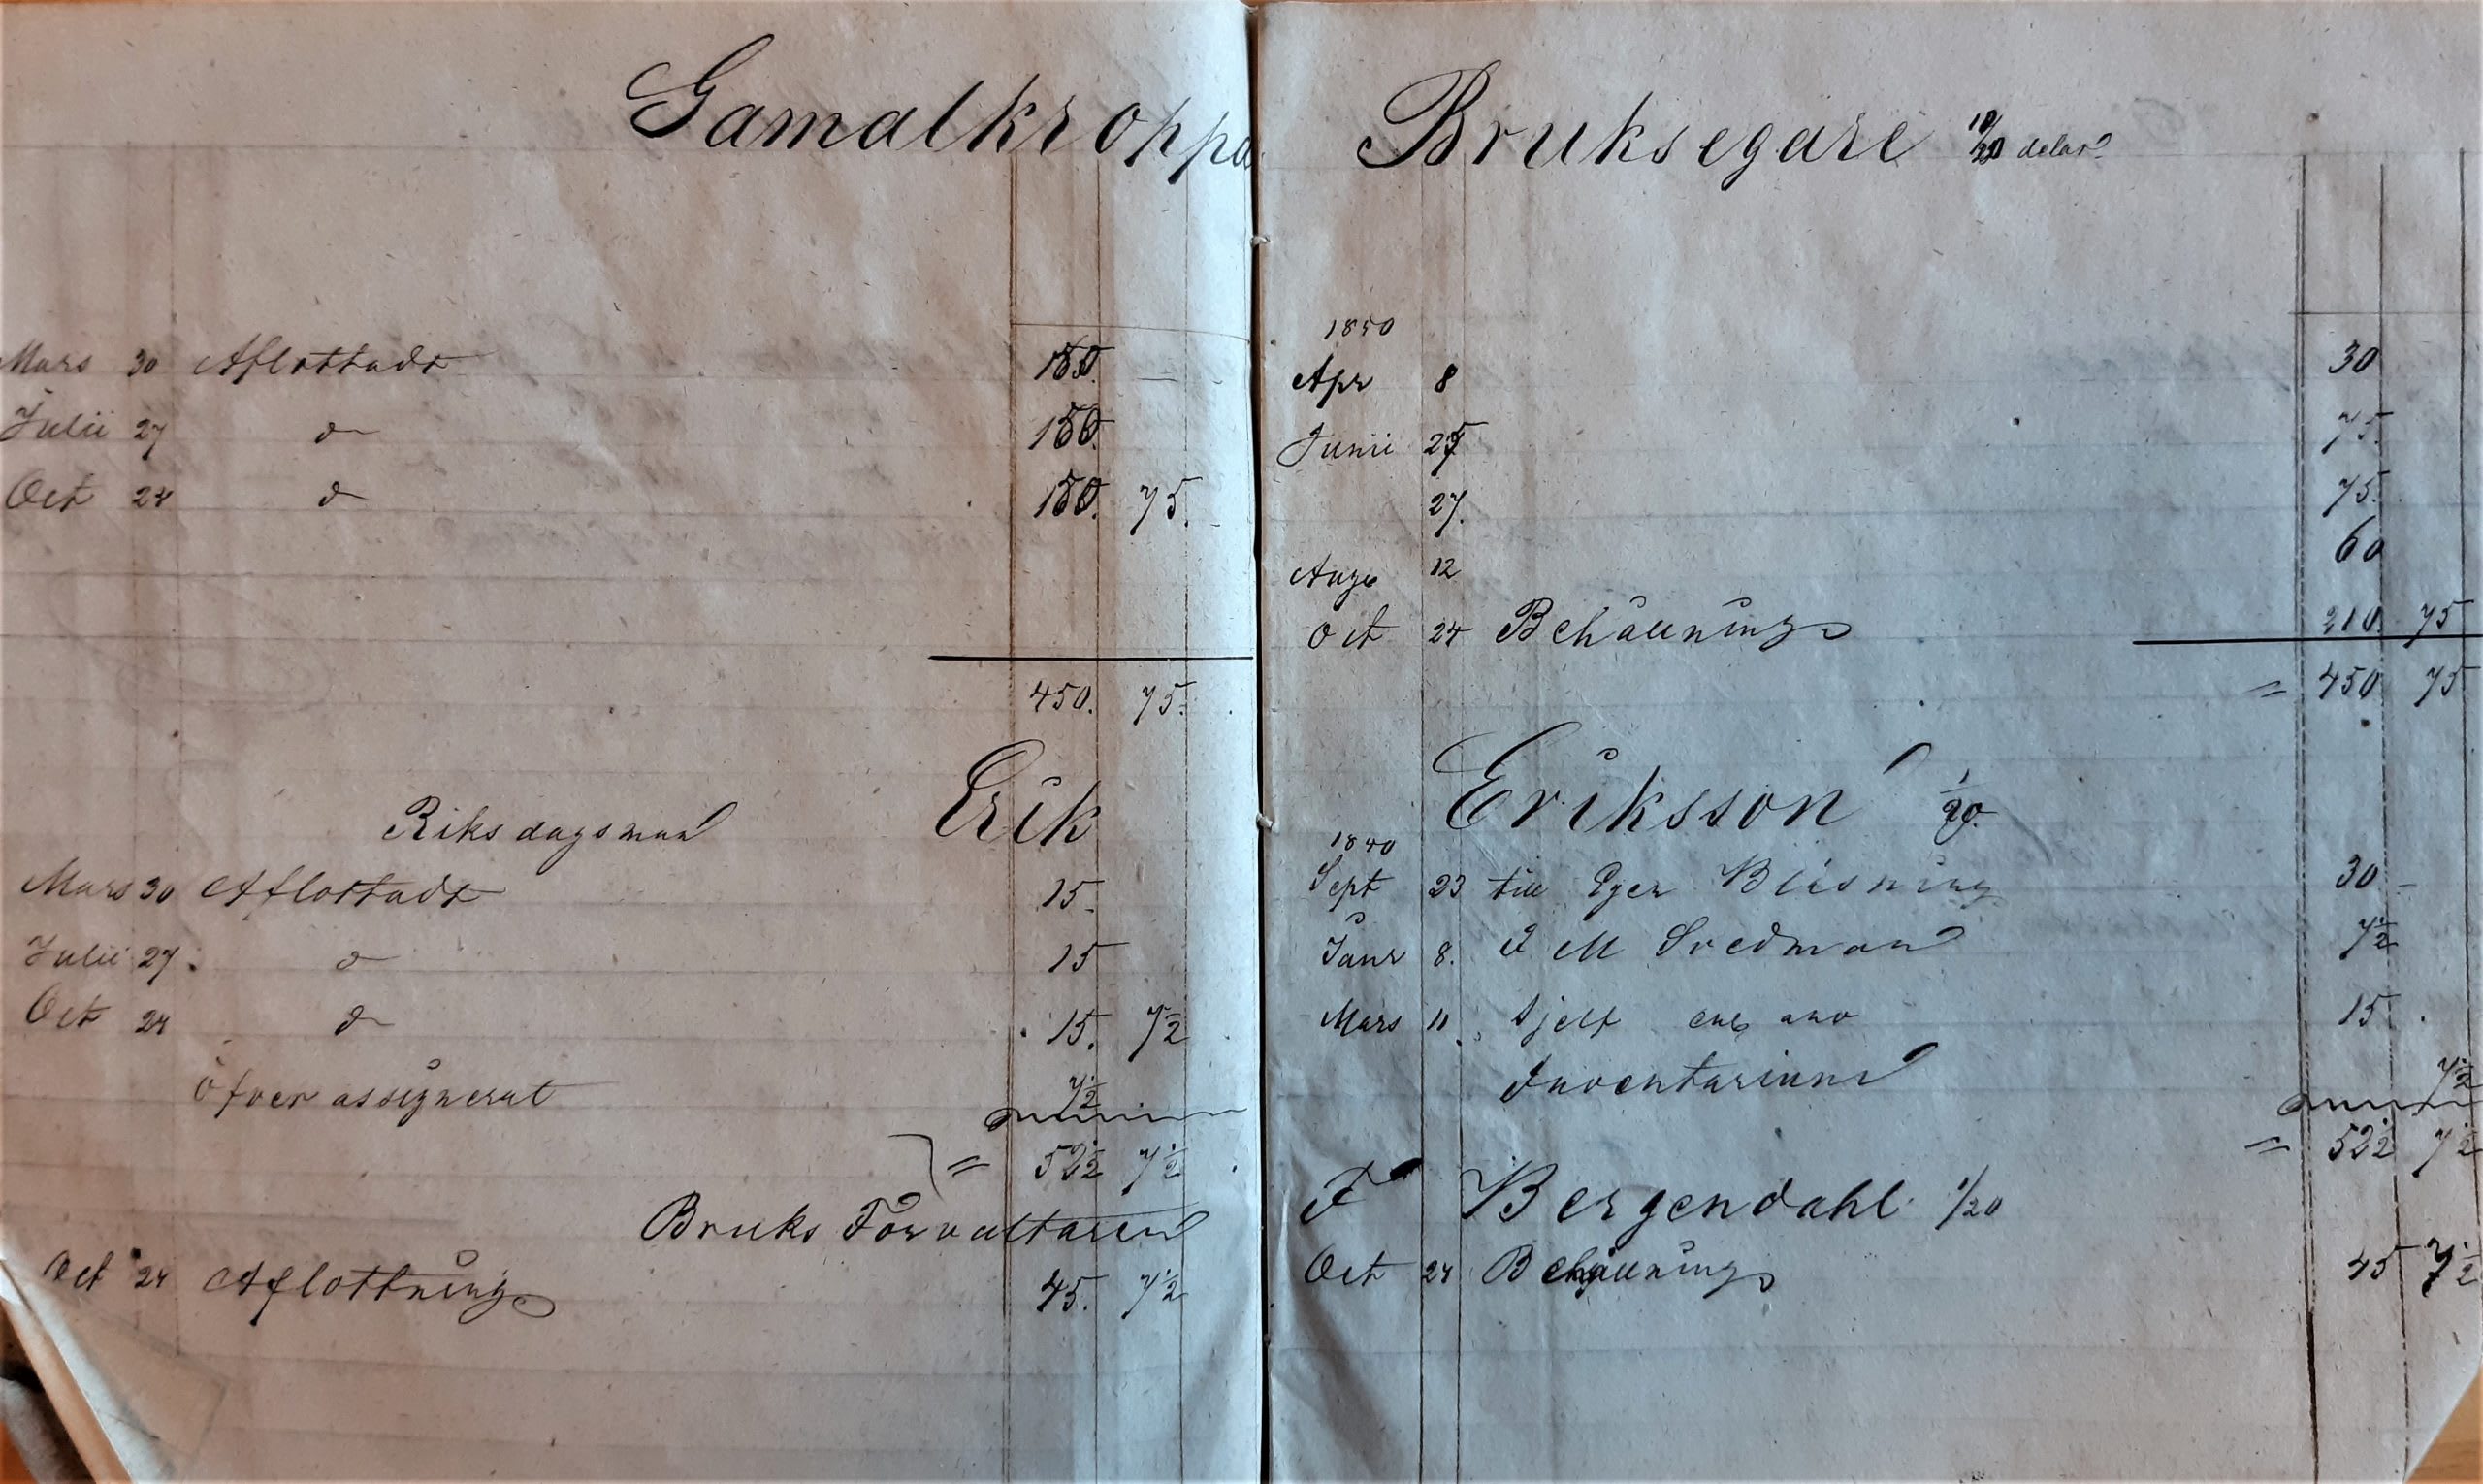 Gamalkroppa Bruksegare 10/20 delar
Mars 30 Aflottadt 150. —
Julii 27 d 150.
Oct 24 d 150. 75.
450. 75.
Riksdagsman Erik
Mars 30 Aflottadt 15.
Julii 27. d 15
Oct 24 d 15. 7½
Öfver assignerat 7½
= 52½ 7½
Bruks Förvaltaren
Oct 24 Aflottning 45. 7½
1850
Apr 8 30
Junii 25 75.
27. 75.
Aug 12 60
Oct 24 Behållning 210. 75
= 450 75
Eriksson 1/20.
1840
Sept 23 till Eger Blåsning 30 -
Janr 8. J M Svedman 7½
Mars 11 Sjelf 15.
Inventarium 7½
= 52½ 7½
F Bergendahl 1/20
Oct 24 Behållning 45 7½